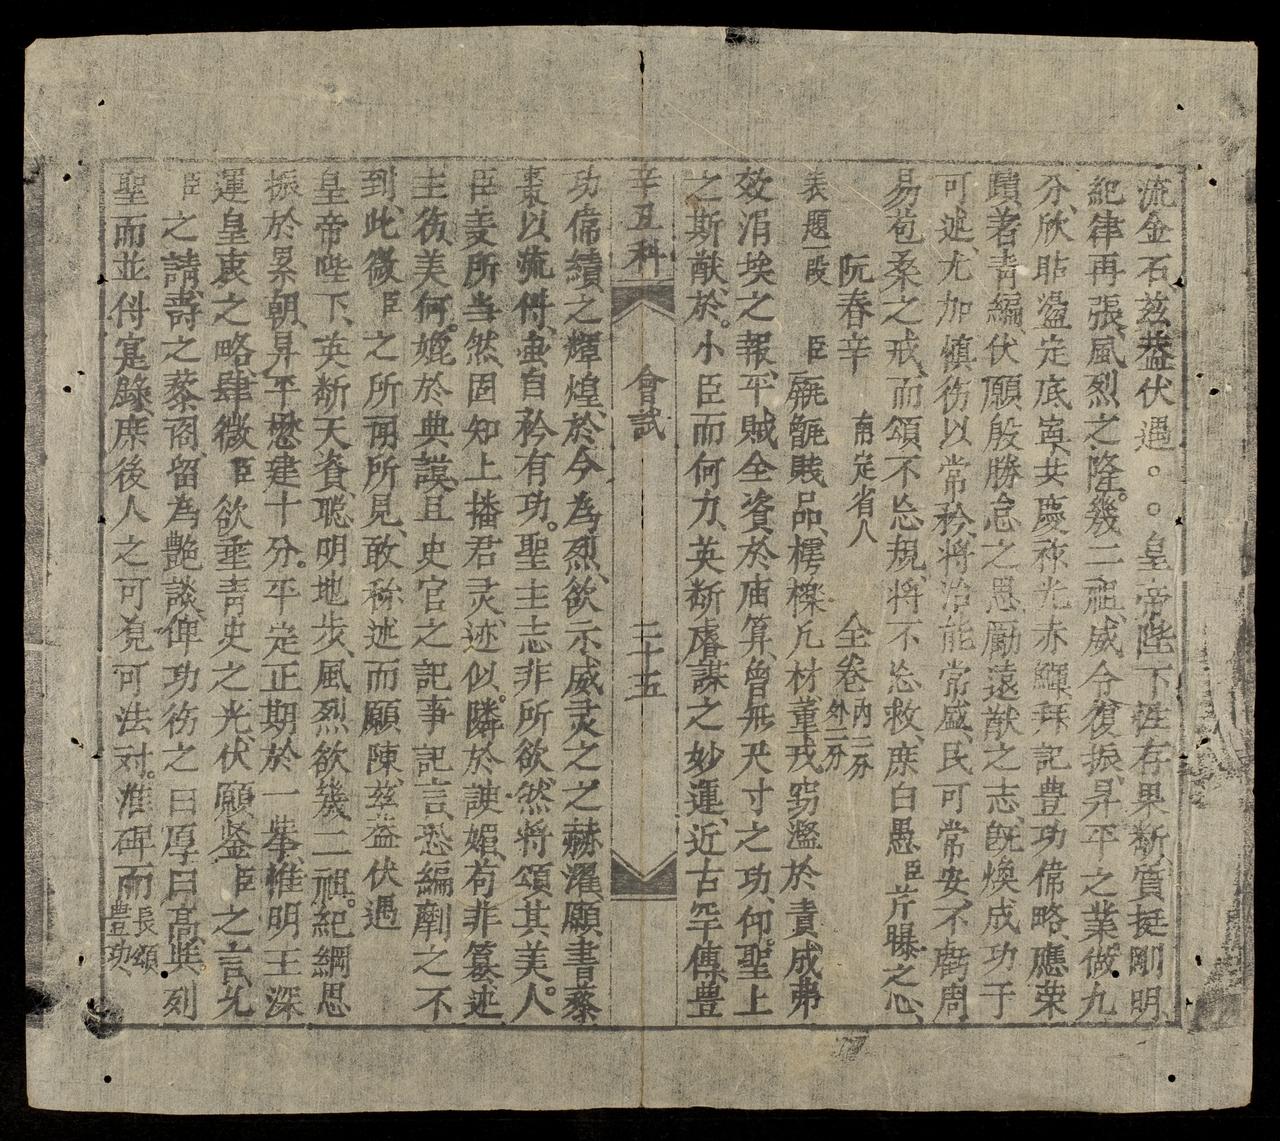 流金石茲蓋伏遇。。皇帝陛下性存果断質挺剛明
紀律再張風烈之隆幾二祖威令復振昇平之業做九
分欣貼盪定底寧共慶祿光赤縣拜記豊功偉略應荣
蹟著青編伏願殷勝怠之思勵遠猷之志既煥成功于
可述尤加慎伤以常矜将治能常盛民可常安不虧周
易苞桑之戒而頌不忘規将不忘救庶白愚臣芹曝之心
阮春辛 南定省人 全卷内二分外二分
表題一段 臣 賎品樗櫟凡材董戎窃濫於責成弗
效涓埃之報平賊全資於庙算曾無尺寸之功仰聖上
之斯猷於小臣而何力英断睿謀之妙運近古罕傳豊
辛丑科 會試 二十五
功偉績之輝煌於今為烈欲示威灵之之赫濯願書蔡
棗以流傳盍自矜有功聖主志非所欲然将頌其美人
臣姜所当然固知上播君灵迹似隣於諛媚苟非篡述
主伤美何媲於典謨且史官之記事記言恐編劘之不
到此微臣之所聞所見敢稱述而願陳茲蓋伏遇
皇帝陛下英断天資聡明地步風烈欲幾二祖紀綱思
振於累朝昇平懋建十分平定正期於一挙惟明王深
運皇衷之略肆微臣欲垂青史之光伏願鉴臣之言允
臣之請壽之蔡阁留為艶談俾功伤之曰厚曰高與列
聖而並傳寔錄庶後人之可見可法对淮碑而長頌豊功